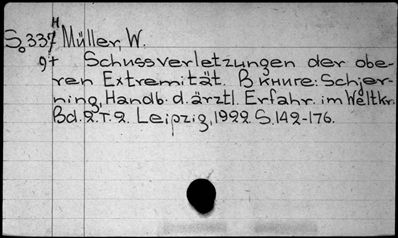 H
So337 Müller, W.
9t Schussverletzungen der obe-
ren Extremität. В книге: Schjer-
ning, Handb. d. ärztl. Erfahr. im Weltkr.
Bd. 2. Т 2. Leipzig, 1922 S. 142-176.